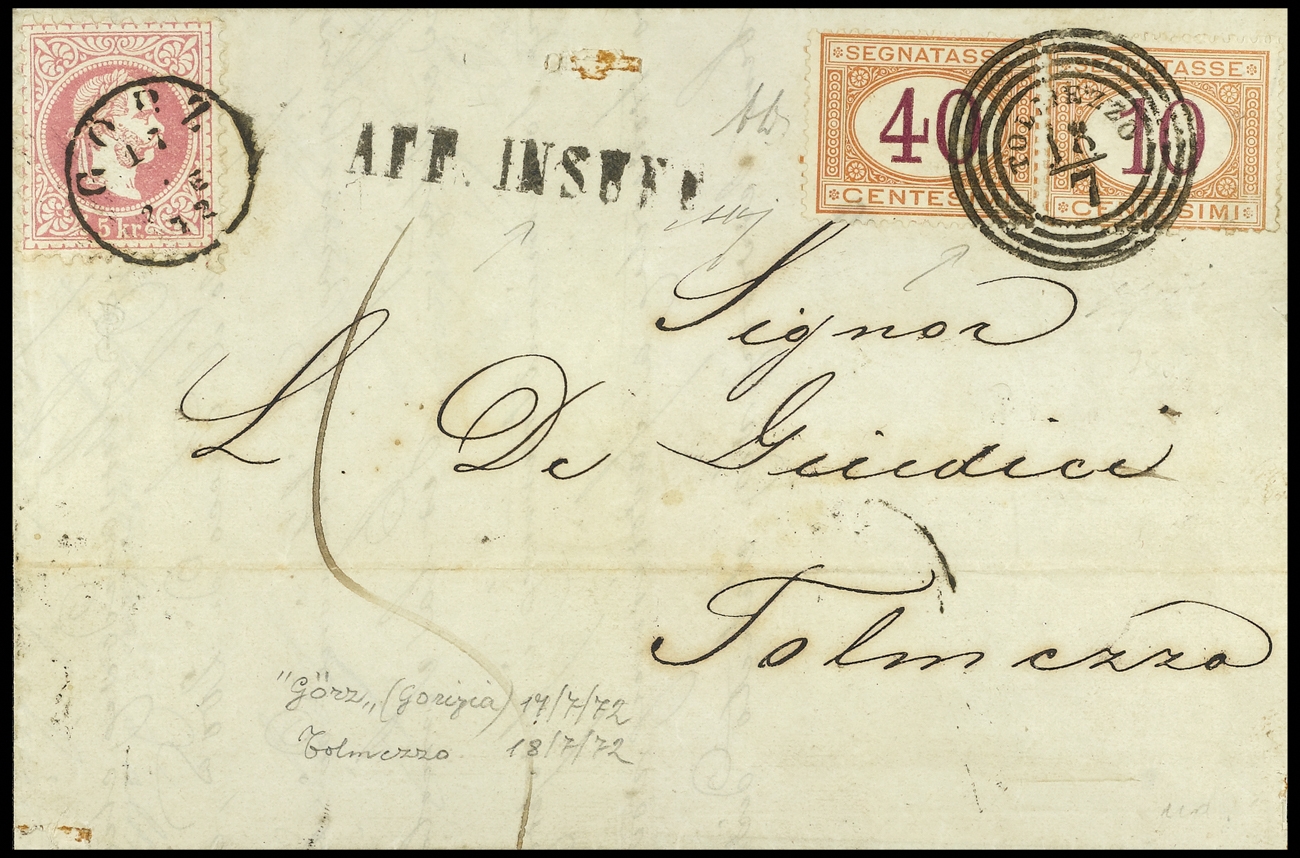 5 kr.
GÖRZ
17
7
72
AFF. INSUFF
SEGNATASSE
40
CENTESIMI
SEGNATASSE
10
CENTESIMI
TOLMEZZO
18
7
Signor
L. De Giudici
Tolmezzo
"Görz„ (Gorizia) 17/7/72
Tolmezzo 18/7/72